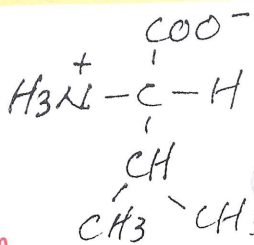 COO⁻
H3N⁺ – C – H
CH
CH3 CH